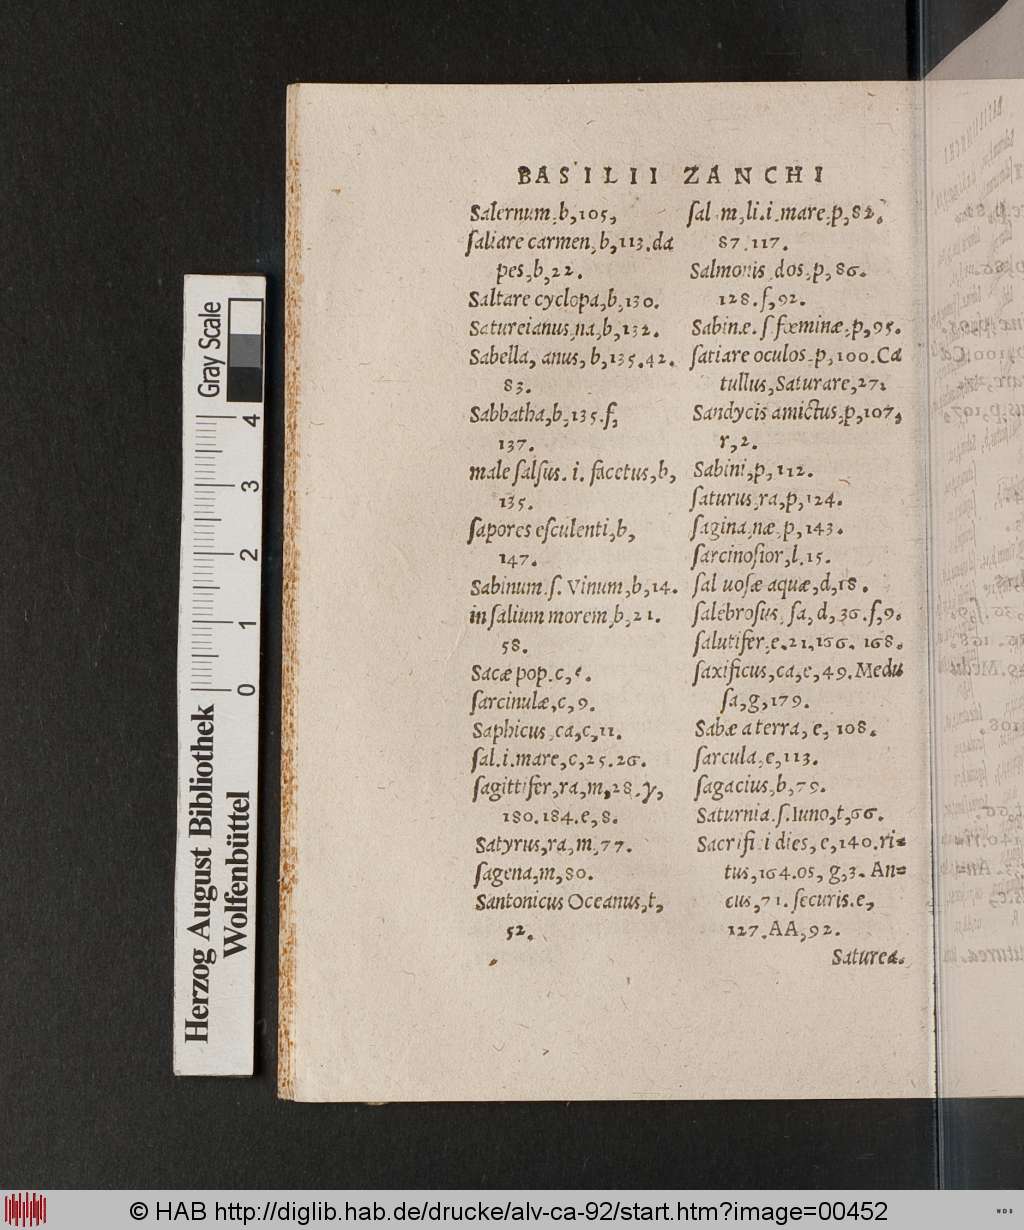 BASILII ZANCHI
Salernum, b, 105,
ſaliare carmen, b, 113. da
pes, b, 22.
Saltare cyclopa, b, 130.
Satureianus, na, b, 132.
Sabella, anus, b, 135. 42.
83.
Sabbatha, b, 135. f,
137.
male ſalſus. i. facetus, b,
135.
ſapores eſculenti, b,
147.
Sabinum. ſ. Vinum, b, 14.
in ſalium morem, b, 21.
58.
Sacæ pop. c,
ſarcinulæ, c, 9.
Saphicus, ca, c, 11.
ſal. i. mare, c, 25. 26.
ſagittifer, ra, m, 28. y,
180. 184. e, 8.
Satyrus, ra, m, 77.
ſagena, m, 80.
Santonicus Oceanus, t,
52.
ſal m, li. i. mare. p, 82.
87. 117.
Salmonis dos, p, 86.
128. f, 92.
Sabinæ. ſ. fœminæ, p, 95.
ſatiare oculos. p, 100. Ca
tullus, Saturare, 27.
Sandycis amictus, p, 107,
r, 2.
Sabini, p, 112.
ſaturus, ra, p, 124.
ſagina, næ, p, 143.
ſarcinoſior, l. 15.
ſal uoſæ aquæ, d, 18.
ſalebroſus, ſa, d, 36. f, 9.
ſalutifer, e. 21, 166. 168.
ſaxificus, ca, e, 49. Medu
ſa, g, 179.
Sabæ a terra, e, 108.
ſarcula, e, 113.
ſagacius, b, 79.
Saturnia. ſ. Iuno, t, 66.
Sacrifi i dies, e, 140. ri=
tus, 164. 05, g, 3. An=
cus, 71. ſecuris. e,
127. AA, 92.
Saturea.
Gray Scale
4
3
2
1
0
Herzog August Bibliothek
Wolfenbüttel
© HAB http://diglib.hab.de/drucke/alv-ca-92/start.htm?image=00452
WDB